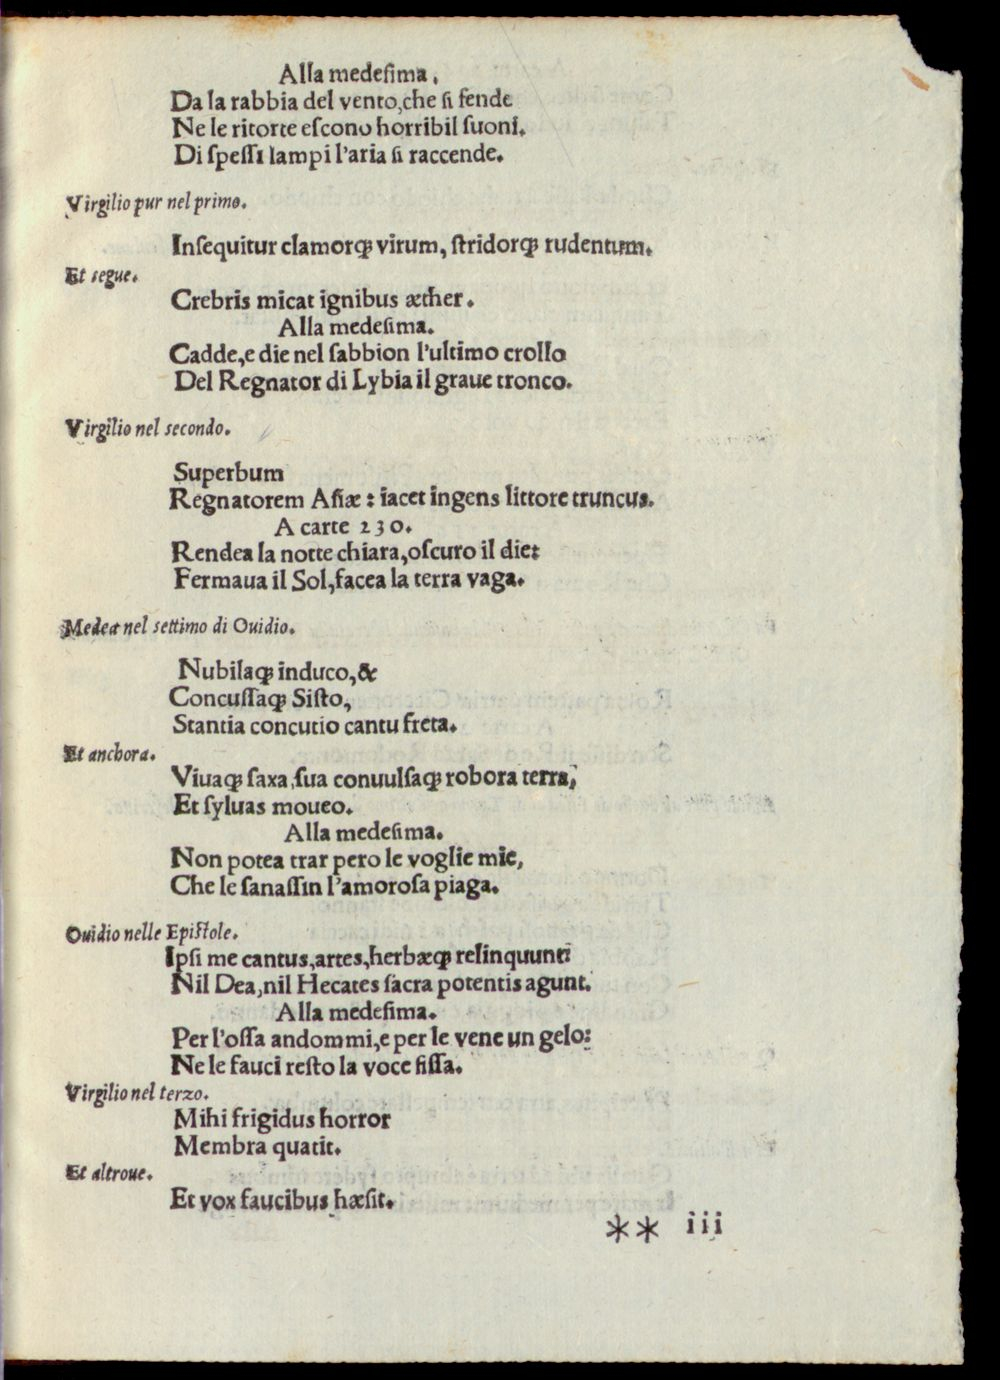 Alla medesima.
Da la rabbia del vento,che si fende
Ne le ritorte eſcono horribil ſuoni.
Di ſpeſſi lampi l'aria ſi raccende.
Virgilio pur nel primo.
Inſequitur clamorq; virum, ſtridorq; rudentum.
Et segue.
Crebris micat ignibus æther.
Alla medesima.
Cadde,e die nel ſabbion l'ultimo crollo
Del Regnator di Lybia il graue tronco.
Virgilio nel secondo.
Superbum
Regnatorem Aſiæ: iacet ingens littore truncus.
A carte 230.
Rendea la notte chiara,oſcuro il die:
Fermaua il Sol,facea la terra vaga.
Medea nel settimo di Ouidio.
Nubilaq; induco,&
Concuſſaq; Siſto,
Stantia concutio cantu freta.
Et anchora.
Viuaq; ſaxa,ſua conuulſaq; robora terra,
Et ſyluas moueo.
Alla medeſima.
Non potea trar pero le voglie mie,
Che le ſanaſſin l'amoroſa piaga.
Ouidio nelle Epiſtole.
Ipſi me cantus,artes,herbæq; relinquunt:
Nil Dea,nil Hecates ſacra potentis agunt.
Alla medeſima.
Per l'oſſa andommi,e per le vene un gelo:
Ne le fauci reſto la voce fiſſa.
Virgilio nel terzo.
Mihi frigidus horror
Membra quatit.
Et altroue.
Et vox faucibus hæſit.
** iii